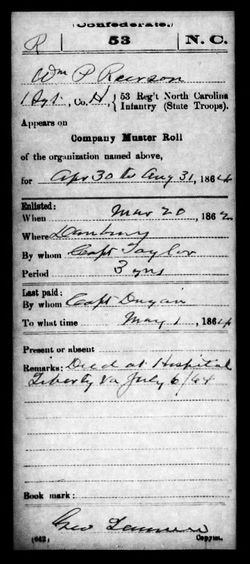 (Confederate.)
R 53 N. C.
Wm P Rierson
1 Sgt, Co. H, 53 Reg't North Carolina
Infantry (State Troops).
Appears on
Company Muster Roll
of the organization named above,
for Apr 30 to Aug 31, 1864
Enlisted:
When Mar 20, 1862
Where Danbury
By whom Capt Taylor
Period 3 yrs
Last paid:
By whom Capt
To what time May 1, 1864
Present or absent
Remarks: Died at Hospital
Liberty Va July 6/64
Book mark:
Geo
(642) Copyist.